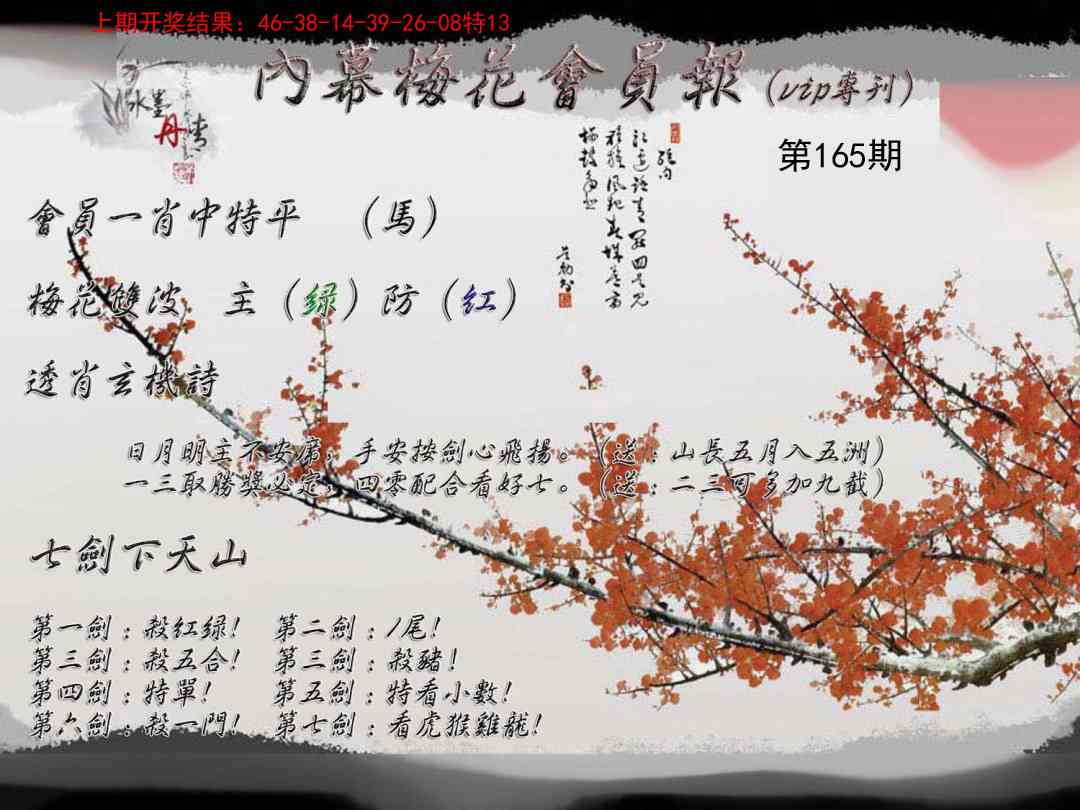 上期开奖结果：46-38-14-39-26-08特13
內幕梅花會員報（vip專刊）
水墨
丹情
第165期
會員一肖中特平　（馬）
梅花雙波　主（绿）防（红）
透肖玄機詩
日月明主不安席，手安按劍心飛揚。（送：山長五月入五洲）
一三取勝獎必定，四零配合看好七。（送：二三可多加九截）
七劍下天山
第一劍：殺紅绿！　第二劍：1尾！
第三劍：殺五合！　第三劍：殺豬！
第四劍：特單！　第五劍：特看小數！
第六劍：殺一門！　第七劍：看虎猴雞龍！